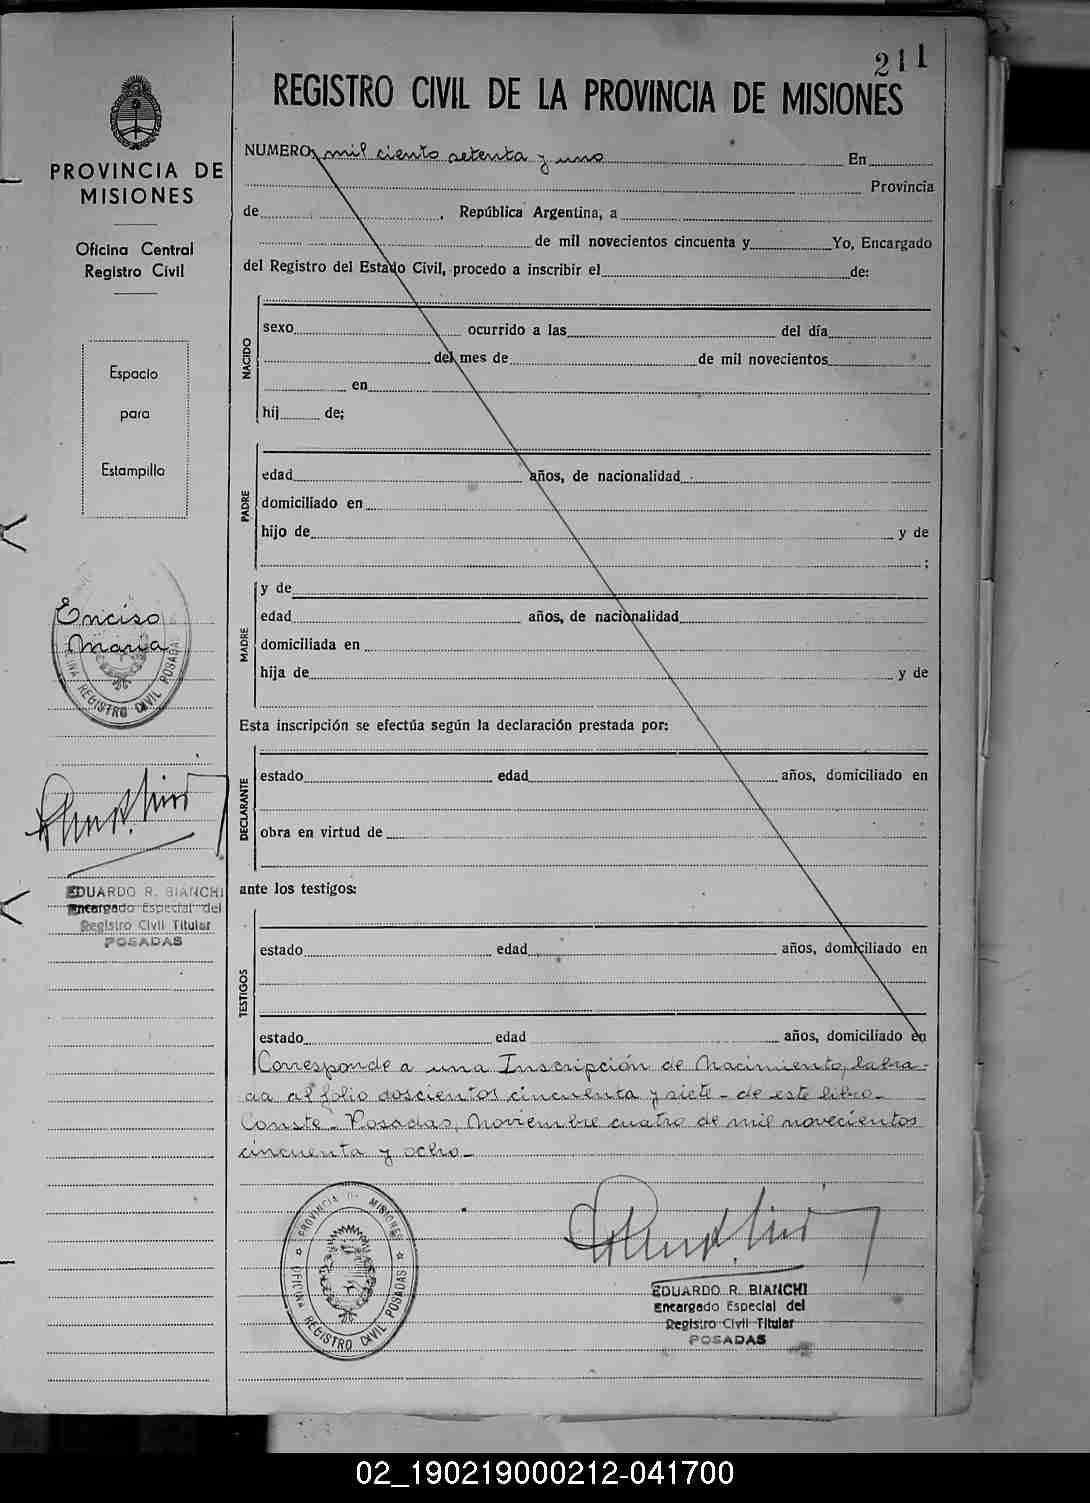 211
REGISTRO CIVIL DE LA PROVINCIA DE MISIONES
PROVINCIA DE
MISIONES
Oficina Central
Registro Civil
Espacio
para
Estampilla
Enciso
Maria
OFICINA REGISTRO CIVIL POSADAS
EDUARDO R. BIANCHI
Encargado Especial del
Registro Civil Titular
POSADAS
NUMERO, mil ciento setenta y uno En
Provincia
de , República Argentina, a
de mil novecientos cincuenta y Yo, Encargado
del Registro del Estado Civil, procedo a inscribir el de:
NACIDO
sexo ocurrido a las del día
del mes de de mil novecientos
en
hij de;
PADRE
edad años, de nacionalidad
domiciliado en
hijo de y de
;
MADRE
y de
edad años, de nacionalidad
domiciliada en
hija de y de
Esta inscripción se efectúa según la declaración prestada por:
DECLARANTE
estado edad años, domiciliado en
obra en virtud de
ante los testigos:
TESTIGOS
estado edad años, domiciliado en
estado edad años, domiciliado en
Corresponde a una Inscripción de Nacimiento, labra-
da al folio doscientos cincuenta y siete - de este libro -
Conste - Posadas, Noviembre cuatro de mil novecientos
cincuenta y ocho -
PROVINCIA DE MISIONES
OFICINA REGISTRO CIVIL POSADAS
EDUARDO R. BIANCHI
Encargado Especial del
Registro Civil Titular
POSADAS
02_190219000212-041700